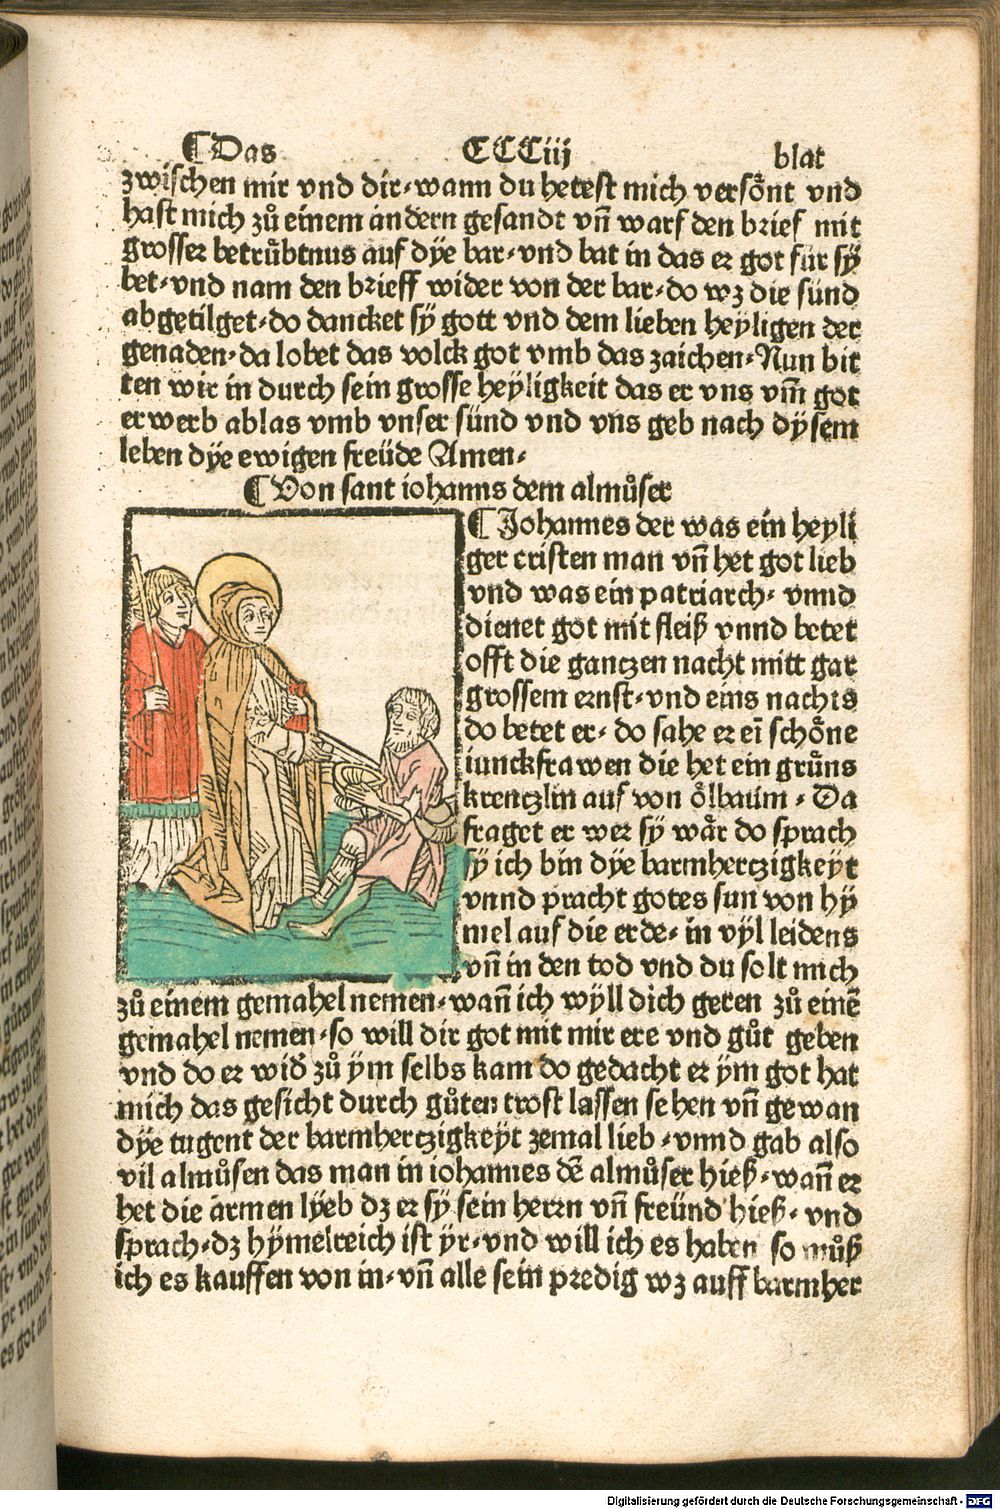 ¶Das CCCiij blat
zwischen mir vnd dir·wann du hetest mich versönt vnd
hast mich zů einem andern gesandt vn̄ warf den brief mit
grosser betrůbtnus auf dÿe bar·vnd bat in das er got für sÿ
bet·vnd nam den brieff wider von der bar·do wz die sünd
abgetilget·do dancket sÿ gott vnd dem lieben heyligen der
genaden·da lobet das volck got vmb das zaichen·Nun bit
ten wir in durch sein grosse heyligkeit das er vns vm̄ got
erwerb ablas vmb vnser sünd vnd vns geb nach dÿsem
leben dÿe ewigen freüde Amen·
¶Von sant iohanns dem almůser
¶Johannes der was ein heyli
ger cristen man vn̄ het got lieb
vnd was ein patriarch· vnnd
dienet got mit fleiß vnnd betet
offt die gantzen nacht mitt gar
grossem ernst·vnd eins nachts
do betet er· do sahe er eī schöne
iunckfrawen die het ein grůns
krentzlin auf von ölbaum· Da
fraget er wer sÿ wår do sprach
sÿ ich bin dÿe barmhertzigkeÿt
vnnd pracht gotes sun von hÿ
mel auf die erde· in vÿl leidens
vn̄ in den tod vnd du solt mich
zů einem gemahel nemen·wan̄ ich wÿll dich geren zů einē
gemahel nemen·so will dir got mit mir ere vnd gůt geben
vnd do er wid̄ zů ÿm selbs kam do gedacht er ÿm got hat
mich das gesicht durch gůten trost lassen sehen vn̄ gewan
dÿe tugent der barmhertzigkeÿt zemal lieb·vnnd gab also
vil almůsen das man in iohannes dē almůser hieß·wan̄ er
het die armen lÿeb dz er sÿ sein herrn vn̄ freünd hieß· vnd
sprach·dz hÿmelreich ist ÿr·vnd will ich es haben so můß
ich es kauffen von in·vn̄ alle sein predig wz auff barmher
Digitalisierung gefördert durch die Deutsche Forschungsgemeinschaft - DFG